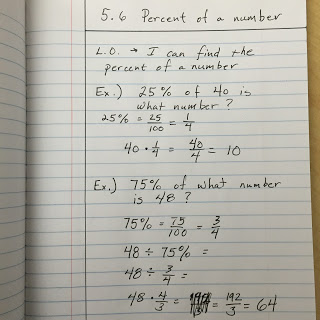 5.6 Percent of a number
L.O. → I can find the
percent of a number
Ex.) 25% of 40 is
what number?
25% = 25/100 = 1/4
40 · 1/4 = 40/4 = 10
Ex.) 75% of what number
is 48?
75% = 75/100 = 3/4
48 ÷ 75% =
48 ÷ 3/4 =
48 · 4/3 = = 192/3 = 64